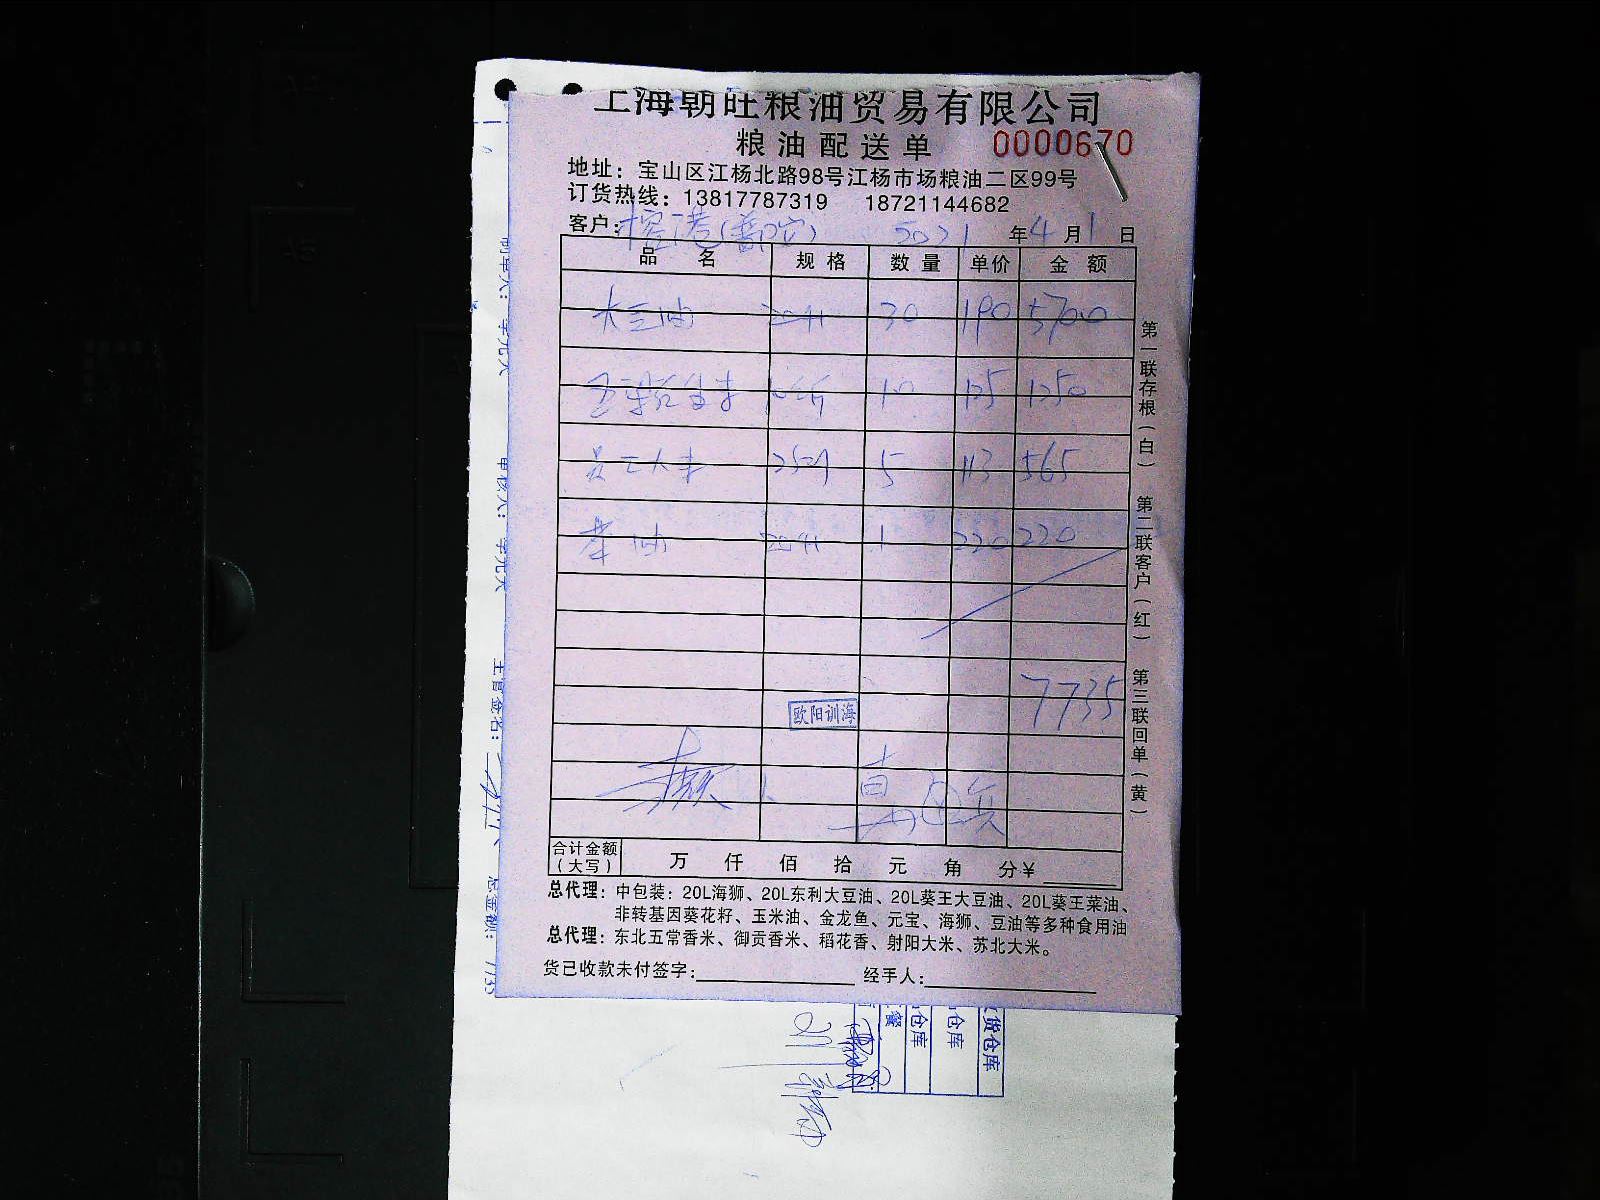 上海朝旺粮油贸易有限公司
粮油配送单 0000670
地址：宝山区江杨北路98号江杨市场粮油二区99号
订货热线：13817787319 18721144682
客户： 2021年4月1日
品名 规格 数量 单价 金额
大豆油 30 190 5700
10 125 1250
员工大米 5 113 565
菜油 1 220 220
7735
欧阳训海
合计金额（大写） 万 仟 佰 拾 元 角 分￥
总代理：中包装：20L海狮、20L东利大豆油、20L葵王大豆油、20L葵王菜油、
非转基因葵花籽、玉米油、金龙鱼、元宝、海狮、豆油等多种食用油
总代理：东北五常香米、御贡香米、稻花香、射阳大米、苏北大米。
货已收款未付签字： 经手人：
第一联存根（白） 第二联客户（红） 第三联回单（黄）
主管签名：
货仓库
仓库
仓库
餐